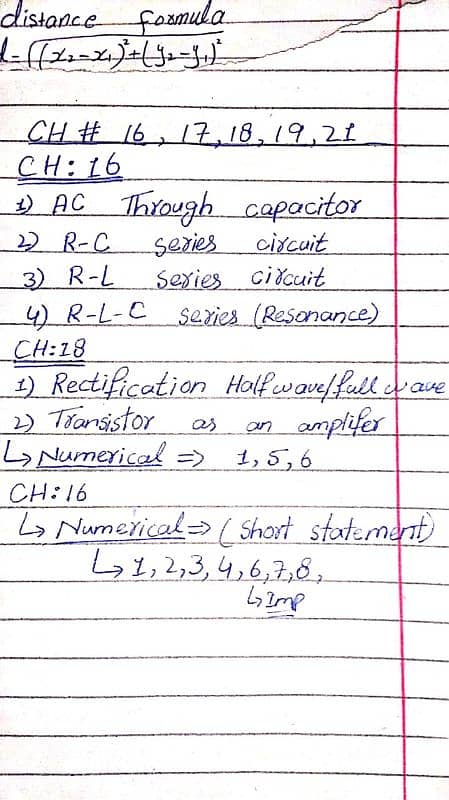 distance formula
d=√((x₂-x₁)²+(y₂-y₁)²
CH # 16, 17, 18, 19, 21
CH: 16
1) AC Through capacitor
2) R-C series circuit
3) R-L series circuit
4) R-L-C series (Resonance)
CH:18
1) Rectification Half wave/full wave
2) Transistor as an amplifer
↳ Numerical => 1, 5, 6
CH:16
↳ Numerical => (Short statement)
↳ 1, 2, 3, 4, 6, 7, 8,
↳ Imp